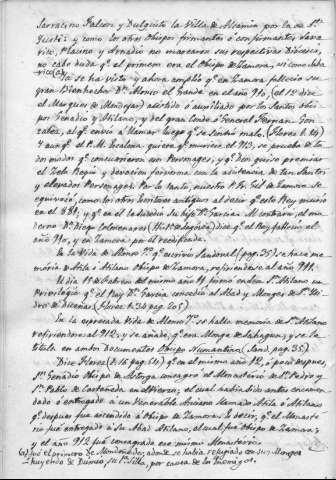 Sarracino Falcon y Dulquito la Villa de Alcamin por la de S.ta
Justa: y como los otros Obispos firmantes ó confirmantes Sava
rico, Placino y Ornadio no marcaron sus respectivas Diócesis,
no cabe duda q.e el primero era el Obispo de Zamora, así como Saba
rico (a).
Ya se ha visto y ahora amplío q.e en Zamora falleció su
gran Bienhechor D.n Alonso el Grande en el año 910, (el 12 dice
el Marques de Mondejar) asistido ó auxiliado por los Santos obis-
pos Genadio y Atilano, y del gran Conde ó General Fernan Gon-
zalez, al q.e envió á llamar luego q.e se sintió malo. (Florez t. 14)
Y aunq.e el P. M. Escalona, quiere q.e muriese el 913, se prueba de to-
dos modos q.e concurrieron los Personages, y q.e Dios quiso premiar
el Zelo Regio y devocion fervorosa con la asistencia de tan Santos
y elevados Personages. Por lo tanto, nuestro P. Fr. Gil de Zamora se
equivocó, como los otros Escritores antiguos al decir q.e este Rey murió
en el 881; y q.e en el le sucedió su hijo D.n Garcia. Al contrario, el mo-
derno D.n Diego Colmenares (Hist.a de Segovia) dice q.e el Rey falleció el
año 910, y en Zamora fue el recopilado.
En la Vida de Alonso 7.o q.e escrivió Sandoval (pag. 35), se hace me-
moria de Atila ó Atilano Obispo de Zamora, refiriendose al año 911.
El dia 15 de Febrero del mismo año 11 firmó ... S.n Atilano un
Privilegio q.e el Rey D.n Garcia concedió al Abad y Monges de S.n Ysi-
dro de Dueñas. (Florez t. 26 pag. 205)
En la expresada Vida de Alonso 7.o se halla memoria de S.n Atilano
refiriendose al 912, y se añade, q.e era Monge de Sahagun, y se le
titula en antos Documentos Obispo Numantino (Sand. pag. 35).
Dice Florez (t. 16 pag. 14) q.e en el mismo año 12, ó poco despues,
S.n Genadio Obispo de Astorga consagró el Monasterio de S.n Pedro y
S.n Pablo de Castañeda en el Vierzo; el cual habia sido antes encomen-
dado ó entregado á un Venerable Anciano llamado Atila ó Atilano
q.e despues fue ascendido á obispo de Zamora. Es decir, q.e el Monaste-
rio fue entregado á su Abad Atilano, el cual fue Obispo de Zamora;
y el año 912 fué consagrado ese mismo Monasterio.
(a) fué el primero de Mondoñedo; adonde se habia refugiado con sus Monges
y huyendo de Dumio, su 1.a Silla, por causa de los Enemigos.